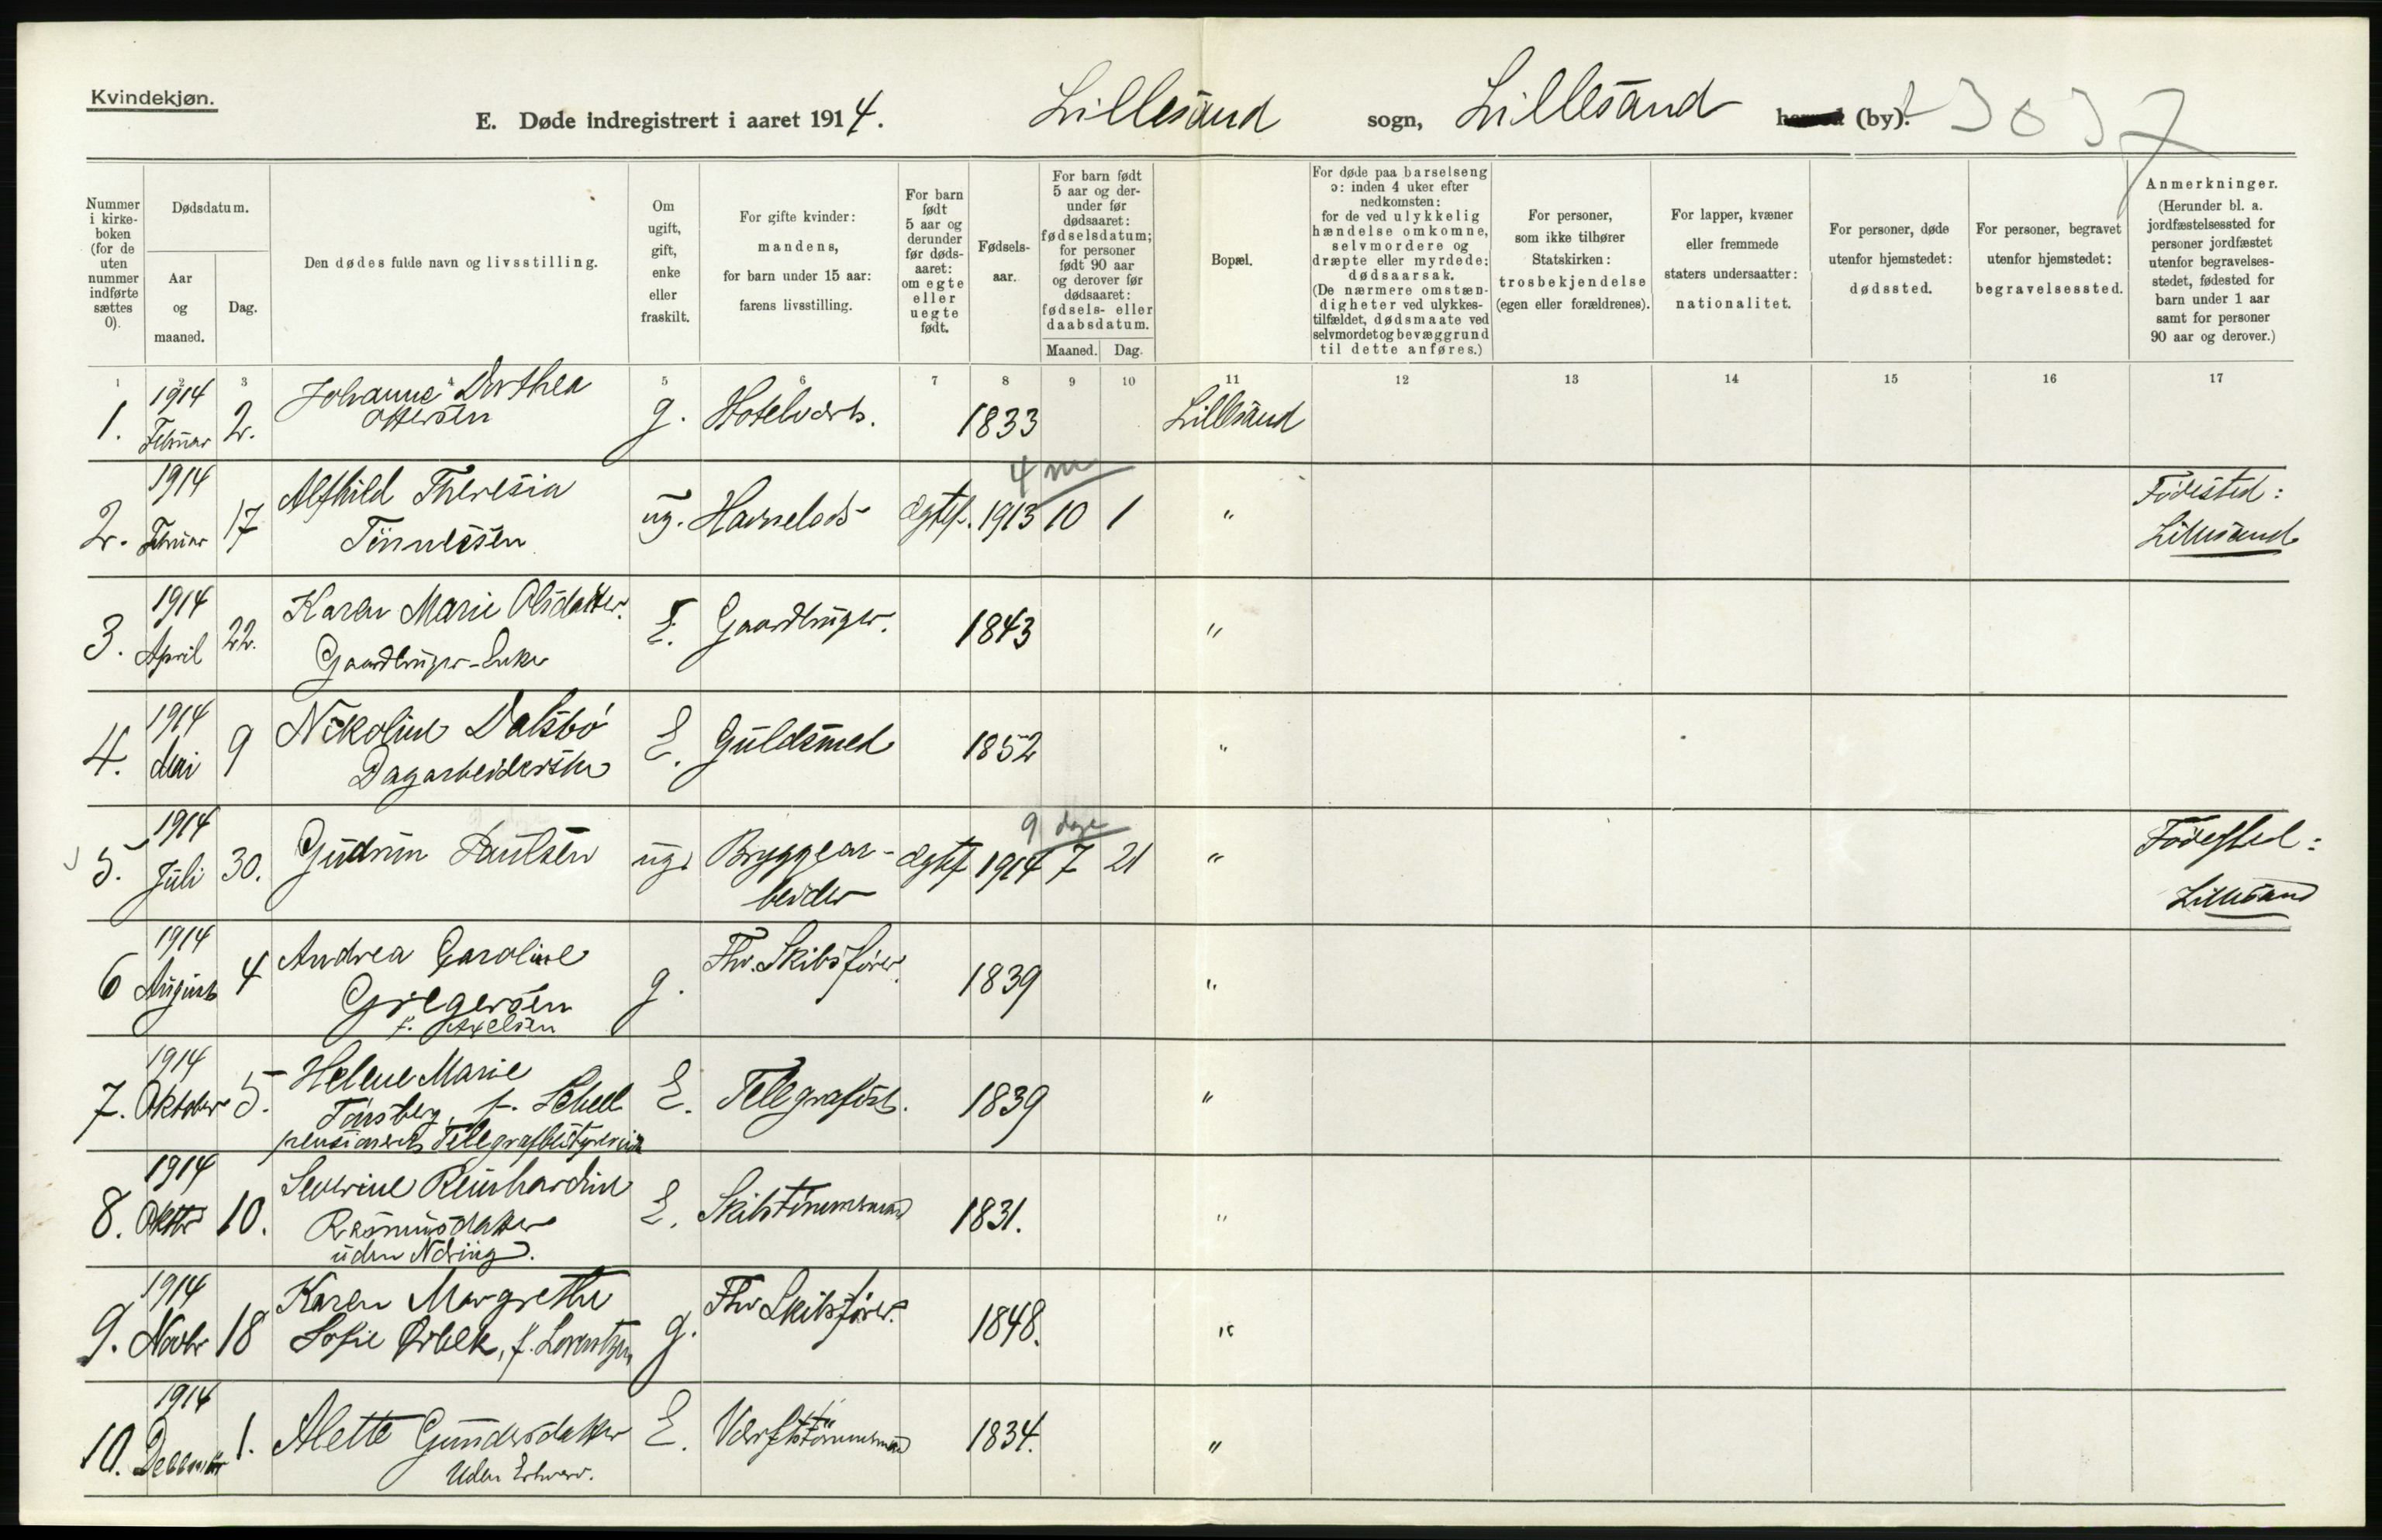 Kvindekjøn.
E. Døde indregistrert i aaret 1914. Lillesand sogn, Lillesand herred (by).
Nummer i kirke-
boken
(for de
uten
nummer
indførte
sættes
0).
Dødsdatum.
Aar
og
maaned.
Dag.
Den dødes fulde navn og livsstilling.
Om
ugift,
gift,
enke
eller
fraskilt.
For gifte kvinder:
mandens,
for barn under 15 aar:
farens livsstilling.
For barn
født
5 aar og
derunder
før døds-
aaret:
om egte
eller
uegte
født.
Fødsels-
aar.
For barn født
5 aar og der-
under før
dødsaaret:
fødselsdatum;
for personer
født 90 aar
og derover før
dødsaaret:
fødsels- eller
daabsdatum.
Maaned. Dag.
Bopæl.
For døde paa barselseng
ɔ: inden 4 uker efter
nedkomsten:
for de ved ulykkelig
hændelse omkomne,
selvmordere og
dræpte eller myrdede:
dødsaarsak.
(De nærmere omstæn-
digheter ved ulykkes-
tilfældet, dødsmaate ved
selvmordet og bevæggrund
til dette anføres.)
For personer,
som ikke tilhører
Statskirken:
trosbekjendelse
(egen eller forældrenes).
For lapper, kvæner
eller fremmede
staters undersaatter:
nationalitet.
For personer, døde
utenfor hjemstedet:
dødssted.
For personer, begravet
utenfor hjemstedet:
begravelsessted.
Anmerkninger.
(Herunder bl. a.
jordfæstelsessted for
personer jordfæstet
utenfor begravelses-
stedet, fødested for
barn under 1 aar
samt for personer
90 aar og derover.)
1 2 3 4 5 6 7 8 9 10 11 12 13 14 15 16 17
1914 Johanne Dorthea
1. Februar 2. Ottersen g. Hotelvært. 1833 Lillesand
4 m
1914 Alfhild Theresia Fødested:
2. Februar 17 Tønnessen ug. Havnelods egtef. 1913 10 1 " Lillesand
1914 Karen Marie Olsdatter.
3. April 22. Gaardbruger-Enke E. Gaardbruger. 1843 "
1914 Nikoline Dalsbø
4. Mai 9 Dagarbeiderske E. Guldsmed 1852 "
9 dage
1914 Fødested:
5. Juli 30. Gudrun Paulsen ug. Bryggear- egtef 1914 7 21 "
beider Lillesand
1914 Andrea Caroline Fhv. Skibsfører.
6 August 4 Gregersen g. 1839 "
f. Axelsen
1914 Helene Marie
7. Oktober 5. Tønsberg, f. Scheel E. Telegrafist. 1839 "
pensioneret Telegrafbestyrerinde
1914 Severine Reinhardine
8. Oktbr 10. Rasmusdatter E. Skibstømmermand 1831. "
uden Næring.
1914 Karen Margrethe Fhv Skibsfører.
9. Novbr 18 Sofie Ørbek, f. Lorentzen g. 1848. "
1914
10. December 1. Alette Gundersdatter E. Værftstømmermand 1834. "
Uden Erhverv.